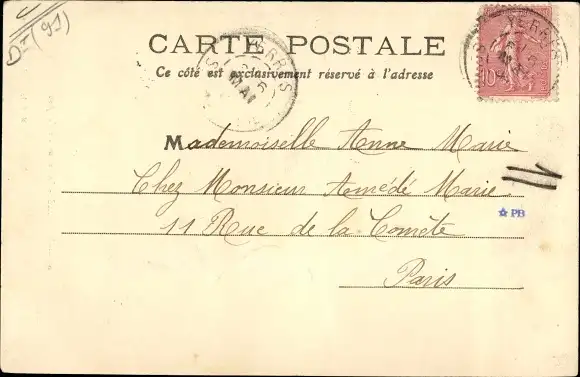 D= (91)
CARTE POSTALE
Ce côté est exclusivement réservé à l'adresse
YERRES
MAI
YERRES
10
Mademoiselle Anne Marie
Chez Monsieur Amédé Marie
11 Rue de la Comète
Paris
☆ PB